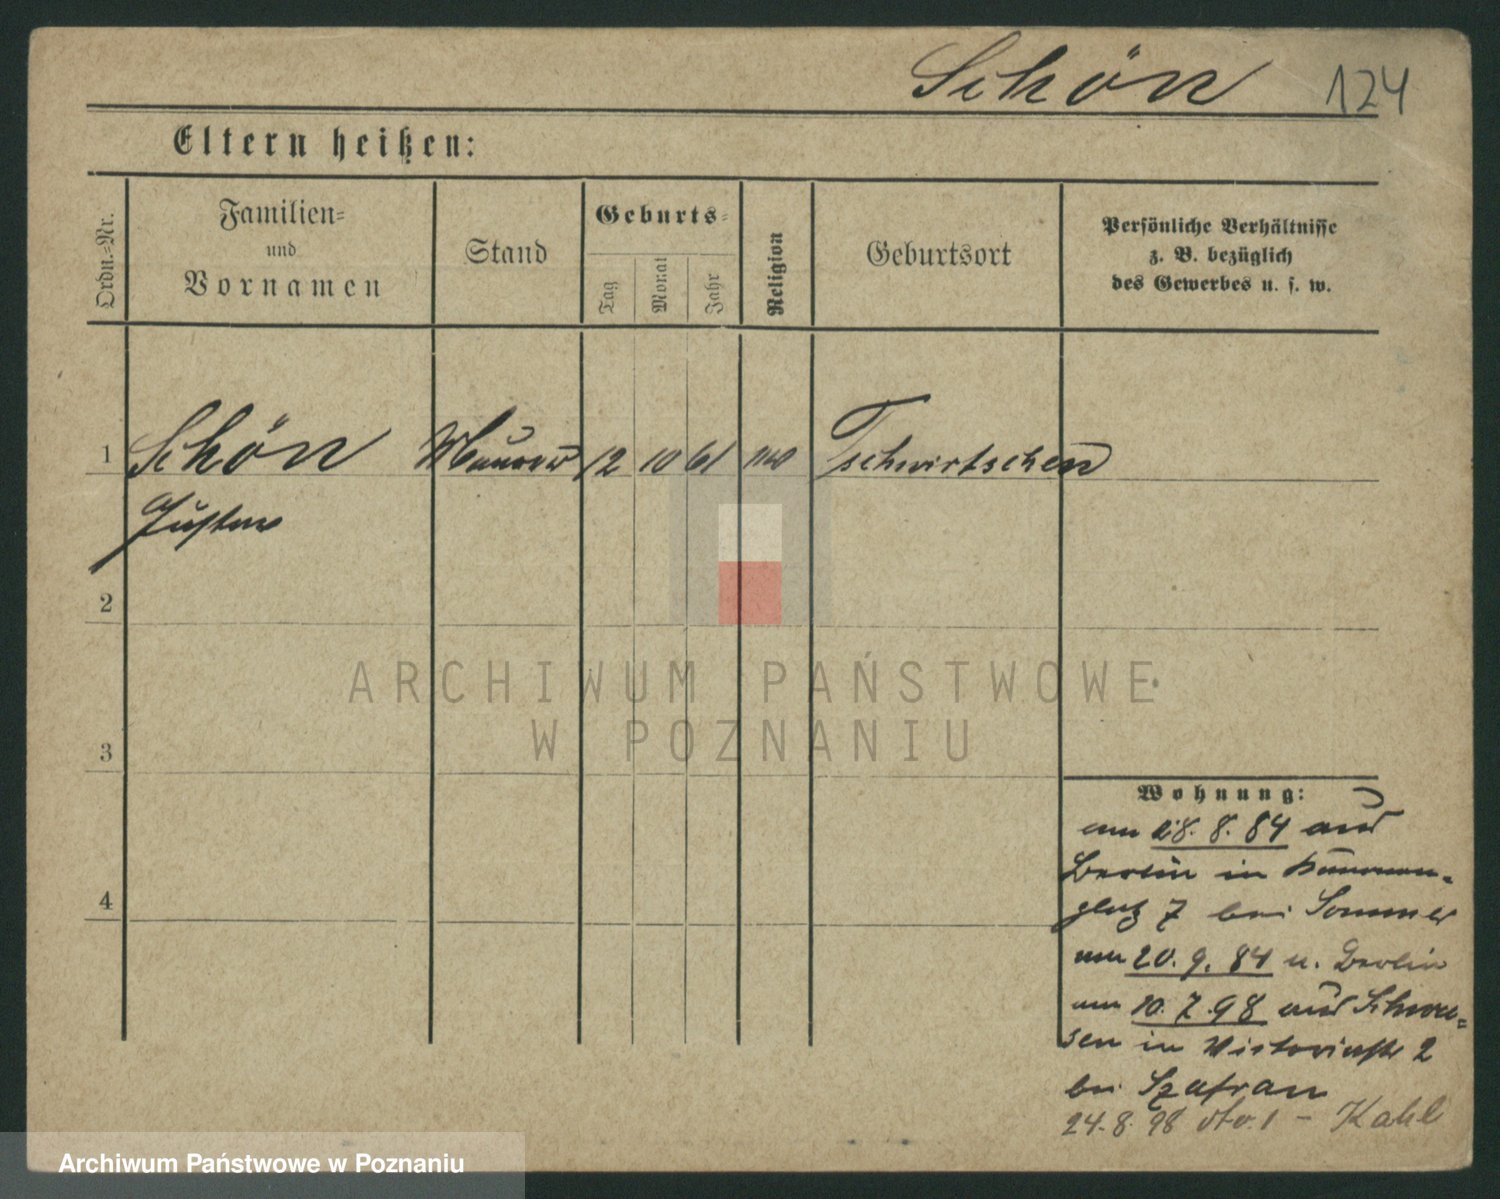 Schön 124
Eltern heißen:
Ordn.-Nr.
Familien-
und
Vornamen
Stand
Geburts-
Tag
Monat
Jahr
Religion
Geburtsort
Persönliche Verhältnisse
z. B. bezüglich
des Gewerbes u. s. w.
1 Schön Maurer 12 10 61 Tschwirtschen
Gustav
2
3
4
ARCHIWUM PAŃSTWOWE
W POZNANIU
Wohnung:
am 28. 8. 84 aus
Berlin in
platz 7 bei Sommer
am 20. 9. 84 n. Berlin
am 10. 7. 98 aus Schwer-
sen in Victoriastr 2
bei Szafran
24. 8. 98 dto. 1 - Kahl
Archiwum Państwowe w Poznaniu